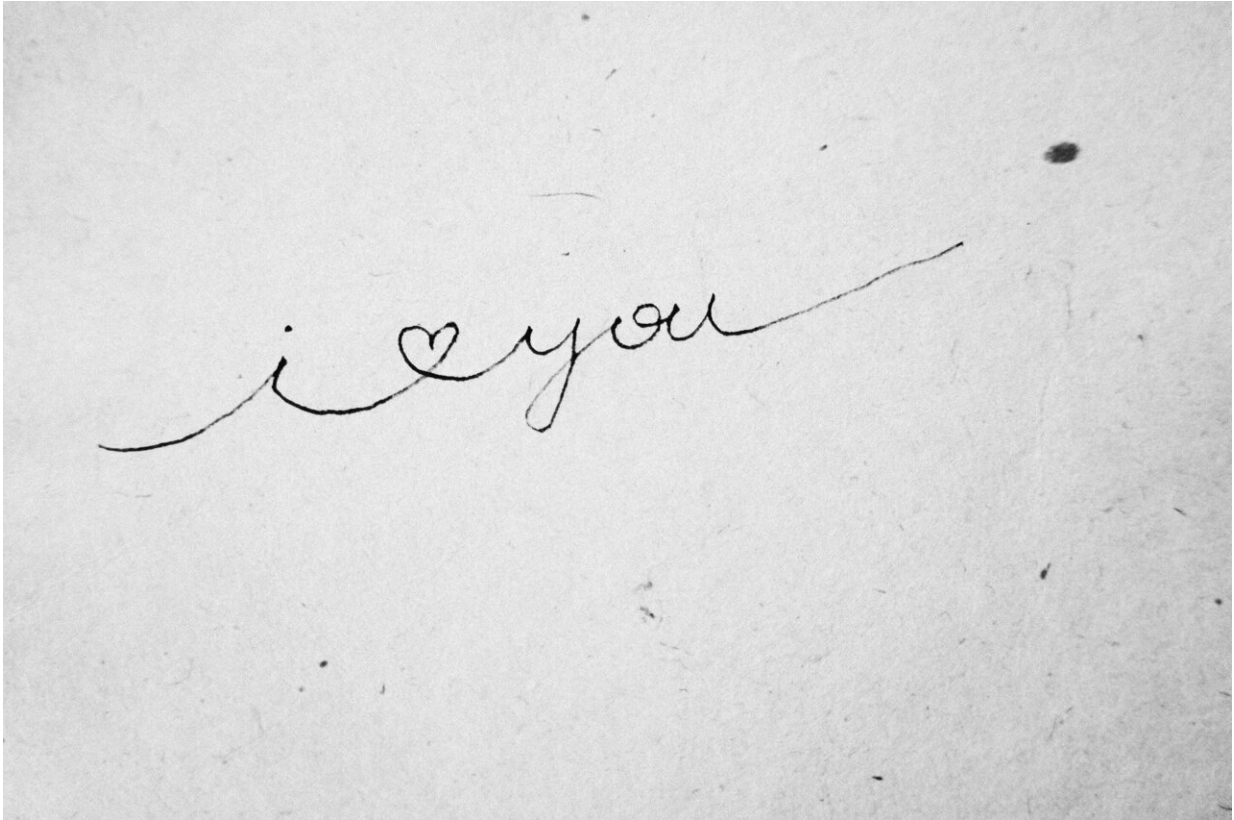 i ♥ you